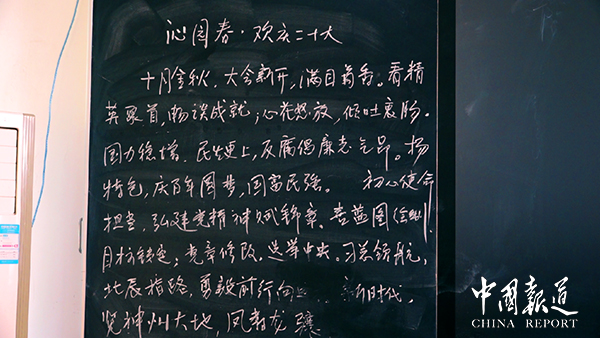 沁园春·欢庆二十大
十月金秋，大会新开，满目菊香。看精
英聚首，畅谈成就；心花怒放，倾吐衷肠。
国力稳增，民生更上，反腐倡廉志气昂。杨
特色，庆百年圆梦，国富民强。 初心使命
担当，弘建党精神赋锦章。喜蓝图绘制，
目标铁定；党章修改，选举中央。习总领航，
北辰指路，勇毅前行向 新时代，
览神州大地，凤翥龙骧
中国报道
CHINA REPORT